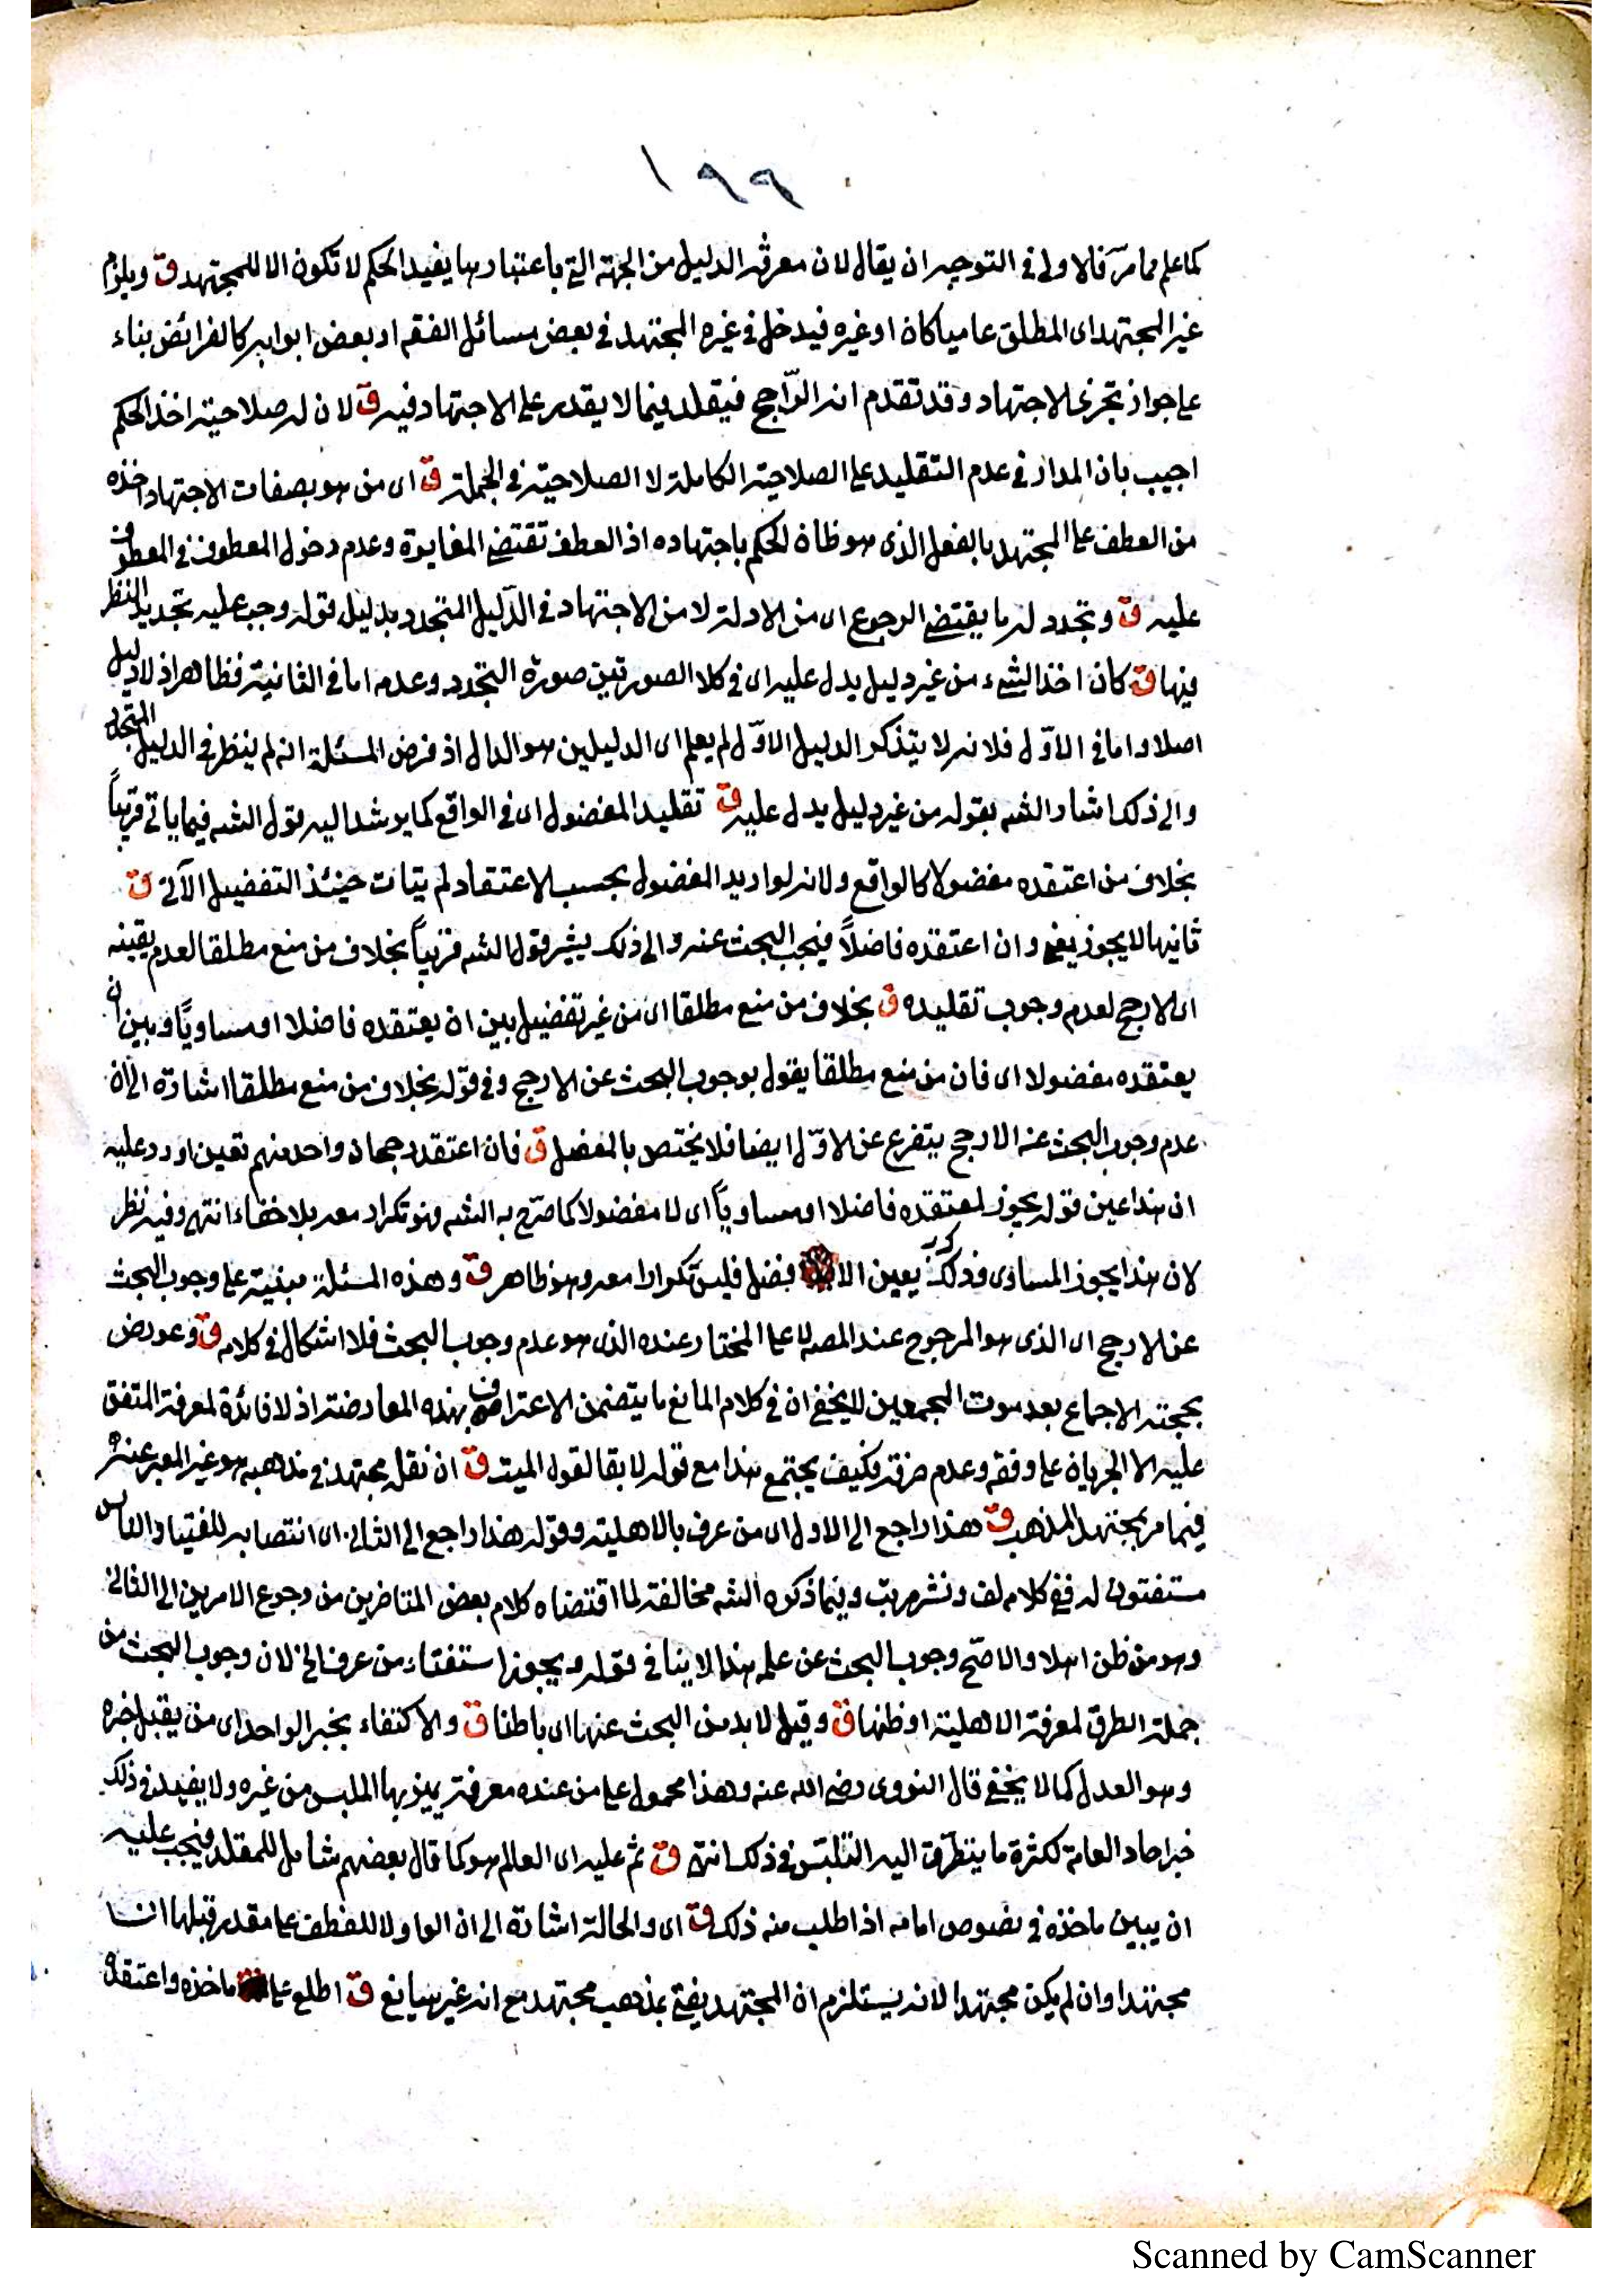 ١٩٩
كما علم مما مرّ فالاولى في التوجيه ان يقال لان معرفة الدليل من الجهة التي باعتبارها يفيد الحكم لا تكون الا للمجتهد ق ويلزم
غير المجتهد اى المطلق عاميا كان او غيره فيدخل في غيره المجتهد في بعض مسائل الفقه او بعض ابوابه كالفرائض بناء
على جواز تجزى الاجتهاد وقد تقدم انه الرّاجح فيقلد فيما لا يقدر على الاجتهاد فيه ق لان له صلاحية اخذ الحكم
اجيب بان المدار في عدم التقليد على الصلاحية الكاملة لا الصلاحية في الجملة ق اى من هو بصفات الاجتهاد اخذه
من العطف على المجتهد بالفعل الذى هو ظان الحكم باجتهاده اذ العطف تقتضى المغايرة وعدم دخول المعطوف في المعطوف
عليه ق وتجدد له ما يقتضى الرجوع اى من الادلة لا من الاجتهاد في الدّليل المتجدد بدليل قوله وجب عليه تجديد النظر
فيها ق كان اخذ الشىء من غير دليل يدل عليه اى في كلا الصورتين صورة التجدد وعدمه اما في الثانية فظاهر اذ لا دليل
اصلا واما في الاوّل فلانه لا يتذكر الدليل الاوّل لم يعلم اى الدليلين هو الدال اذ فرض المسئلة انه لم ينظر في الدليل المتجدد
والى ذلك اشار الشه بقوله من غير دليل يدل عليه ق تقليد المفضول اى في الواقع كما يرشد اليه قول الشه فيما ياتى قريباً
بخلاف من اعتقده مفضولا كالواقع ولانه لو اريد المفضول بحسب الاعتقاد لم يتات حينئذ التفضيل الآتى ق
ثانيها لا يجوز يعنى وان اعتقده فاضلاً فيجب البحث عنه والى ذلك يشير قول الشه قريباً بخلاف من منع مطلقا لعدم يقينه
اى الارجح لعدم وجوب تقليده ق بخلاف من منع مطلقا اى من غير تفضيل بين ان يعتقده فاضلا او مساويًا وبين ان
يعتقده مفضولا اى فان من منع مطلقا يقول بوجوب البحث عن الارجح وفي قوله بخلاف من منع مطلقا اشارة الى ان
عدم وجوب البحث عنه الارجح يتفرع عن الاوّل ايضا فلا يختص بالمفصل ق فان اعتقد رجحان واحد منهم تعين اورد عليه
ان هذا عين قوله يجوز لمعتقده فاضلا او مساوياً اى لا مفضولا كما صرّح به الشه فهو تكرار معه بلا خفاء انتهى وفيه نظر
لان هذا يجوز المساوى وذلك يعين الا فضل فليس تكرارا معه وهو ظاهر ق وهذه المسئلة مبنية على وجوب البحث
عن الارجح اى الذى هو المرجوح عند المصه لا على المختار عنده الذى هو عدم وجوب البحث فلا اشكال في كلامه ق وعورض
بحجته الاجماع بعد موت المجمعين لا يخفى ان في كلام المانع ما يتضمن الاعتراف بهذه المعارضة اذ لا فائدة لمعرفة المتفق
عليه الا الجريان على وفقه وعدم خرقه فكيف يجتمع هذا مع قوله لا بقا لقول الميت ق ان نقل مجتهد في مذهبه هو غير المعبر عنه
فيما مر بمجتهد المذهب ق هذا راجع الى الاول اى من عرف بالاهلية وقوله هذا راجع الى الثانى اى انتصابه للفتيا والناس
مستفتون له ففي كلامه لف ونشر مرتب وفيما ذكره الشه مخالفة لما اقتضاه كلام بعض المتاخرين من رجوع الامرين الى الثانى
وهو من ظن اهلا والاصحّ وجوب البحث عن علمه هذا لا ينافى قوله ويجوز استفتاء من عرف الخ لان وجوب البحث من
جملة الطرق لمعرفة الاهلية او ظنها ق وقيل لا بد من البحث عنها اى باطنا ق والاكتفاء بخبر الواحد اى من يقبل خبره
وهو العدل كما لا يخفى قال النووى رضى الله عنه وهذا محمول على من عنده معرفة يميز بها الملبس من غيره ولا يفيد في ذلك
خبر احاد العامة لكثرة ما يتطرّق اليه التلبّس في ذلك انتهى ق ثم عليه اى العالم هو كما قال بعضهم شامل للمقلد فيجب عليه
ان يبين ماخذه في نصوص امامه اذا طلب منه ذلك ق اى والحالة اشارة الى ان الواو لا للعطف على مقدر قبلها اى
مجتهدا وان لم يكن مجتهدا لانه يستلزم ان المجتهد يفتى بمذهب مجتهد مع انه غير سايغ ق اطلع على ماخذه واعتقده
Scanned by CamScanner